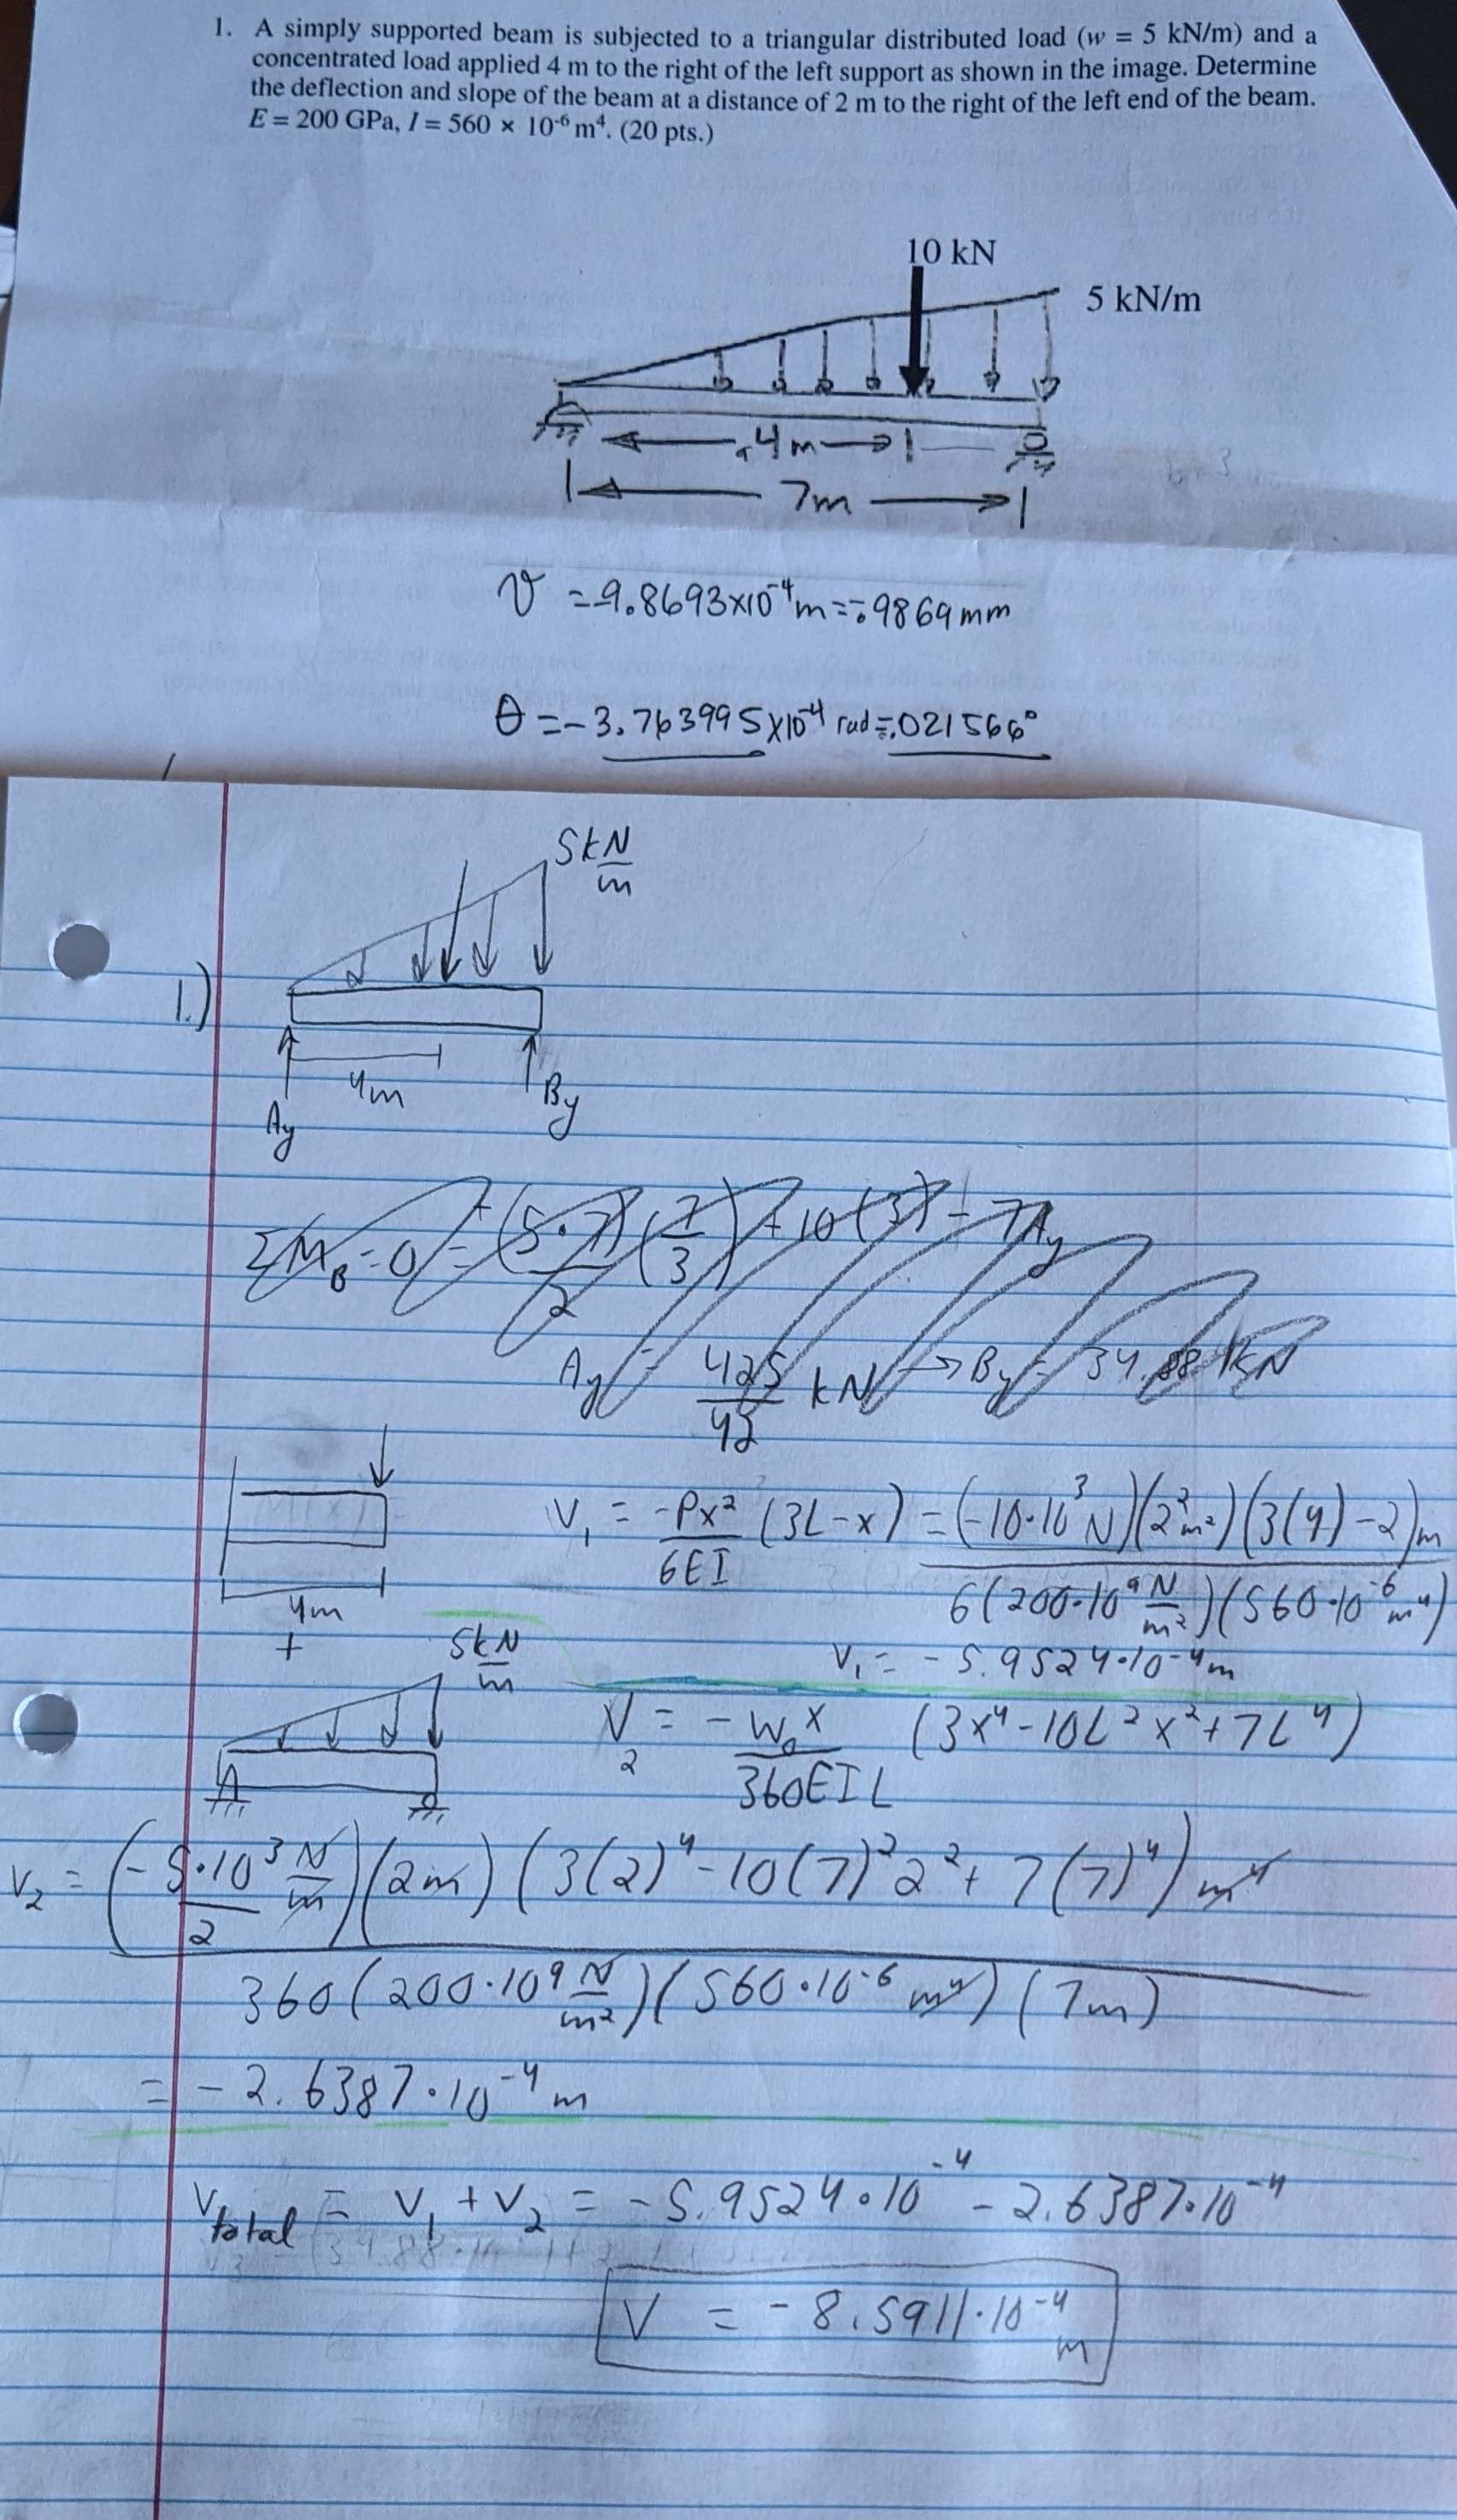 1. A simply supported beam is subjected to a triangular distributed load (w = 5 kN/m) and a
concentrated load applied 4 m to the right of the left support as shown in the image. Determine
the deflection and slope of the beam at a distance of 2 m to the right of the left end of the beam.
E = 200 GPa, I = 560 × 10⁻⁶ m⁴. (20 pts.)
10 kN
5 kN/m
4m
7m
v = -9.8693×10⁻⁴ m = -.9869 mm
θ = -3.763995×10⁻⁴ rad = -.021566°
5 kN/m
1.)
4m
Ay
By
ΣM_B = 0 = (5·7)/2 (7/3) + 10(3) - 7Ay
Ay = 425/42 kN → By = 34.88 kN
4m
V₁ = -Px²/6EI (3L-x) = (-10·10³ N)(2² m²)(3(4)-2)m / 6(200·10⁹ N/m²)(560·10⁻⁶ m⁴)
V₁ = -5.9524·10⁻⁴ m
+
5 kN/m
V₂ = -w₀x/360EIL (3x⁴-10L²x²+7L⁴)
V₂ = (-5·10³/2 N/m)(2m)(3(2)⁴-10(7)²2²+7(7)⁴)m⁴ / 360(200·10⁹ N/m²)(560·10⁻⁶ m⁴)(7m)
= -2.6387·10⁻⁴ m
V total = V₁ + V₂ = -5.9524·10⁻⁴ - 2.6387·10⁻⁴
V = -8.5911·10⁻⁴ m